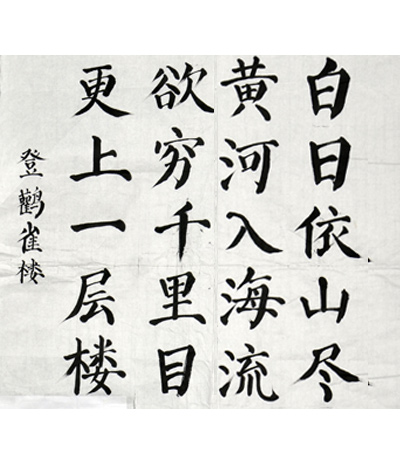 白日依山尽
黄河入海流
欲穷千里目
更上一层楼
登鹳雀楼